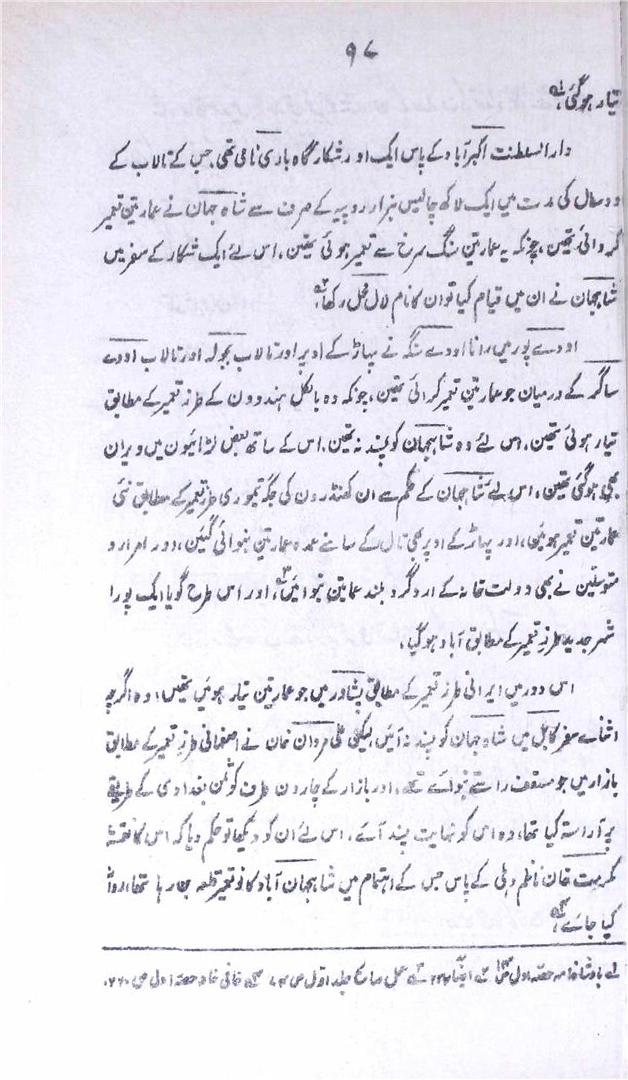 ۹۸
تیار ہوگئی،
دارالسلطنت اکبرآباد کے پاس ایک اور شکارگاہ باری نامی تھی، جس کے تالاب کے
دو سال کی مدت میں ایک لاکھ چالیس ہزار روپیہ کے صرف سے شاہ جہان نے عمارتین تعمیر
کروائی تھین، چونکہ یہ عمارتین سنگ سرخ سے تعمیر ہوئی تھین، اس لئے ایک شکار کے سفر میں
شاہجہان نے ان میں قیام کیا تو ان کا نام لال محل رکھا،
اودے پور میں رانا اودے سنگہ نے پہاڑ کے اوپر اور تالاب بچولہ اور تالاب اودے
ساگر کے درمیان جو عمارتین تعمیر کرائی تھین، چونکہ وہ بالکل ہندوون کے طرز تعمیر کے مطابق
تیار ہوئی تھین، اس لئے وہ شاہجہان کو پسند نہ تھین، اس کے ساتھ بعض لڑائیون میں ویران
بھی ہوگئی تھین، اس لئے شاہجہان کے حکم سے ان کھنڈرون کی جگہ تیموری طرز تعمیر کے مطابق نئی
عمارتین تعمیر ہوئین، اور پہاڑ کے اوپر بھی تال کے سامنے عمدہ عمارتین بنوائی گئین، اور امراء و
متوسلین نے بھی دولت خانہ کے اردگرد بلند عمارتین بنوائین، اور اس طرح گویا ایک پورا
شہر جدید طرز تعمیر کے مطابق آباد ہوگیا،
اس دور میں ایرانی طرز تعمیر کے مطابق پشاور میں جو عمارتین تیار ہوئین تھیں، وہ اگرچہ
اثنائے سفر کابل میں شاہ جہان کو پسند نہ آئین، لیکن علی مردان خان نے اصفہانی طرز تعمیر کے مطابق
بازار میں جو مسقف راستے بنوائے تھے، اور بازار کے چارون طرف کو ثمن بغدادی کے طریقے
پر آراستہ کیا تھا، وہ اس کو نہایت پسند آئے، اس لئے ان کو دیکھا تو حکم دیا کہ اس کا نقشہ
مکرمت خان ناظم دہلی کے پاس جس کے اہتمام میں شاہجہان آباد کا نو تعمیر قلعہ بن رہا تھا، روانہ
کیا جائے،
لے بادشاہ نامہ حصہ اول ص ایضاً عمل صالح جلد اول ص خافی خان حصہ اول ص